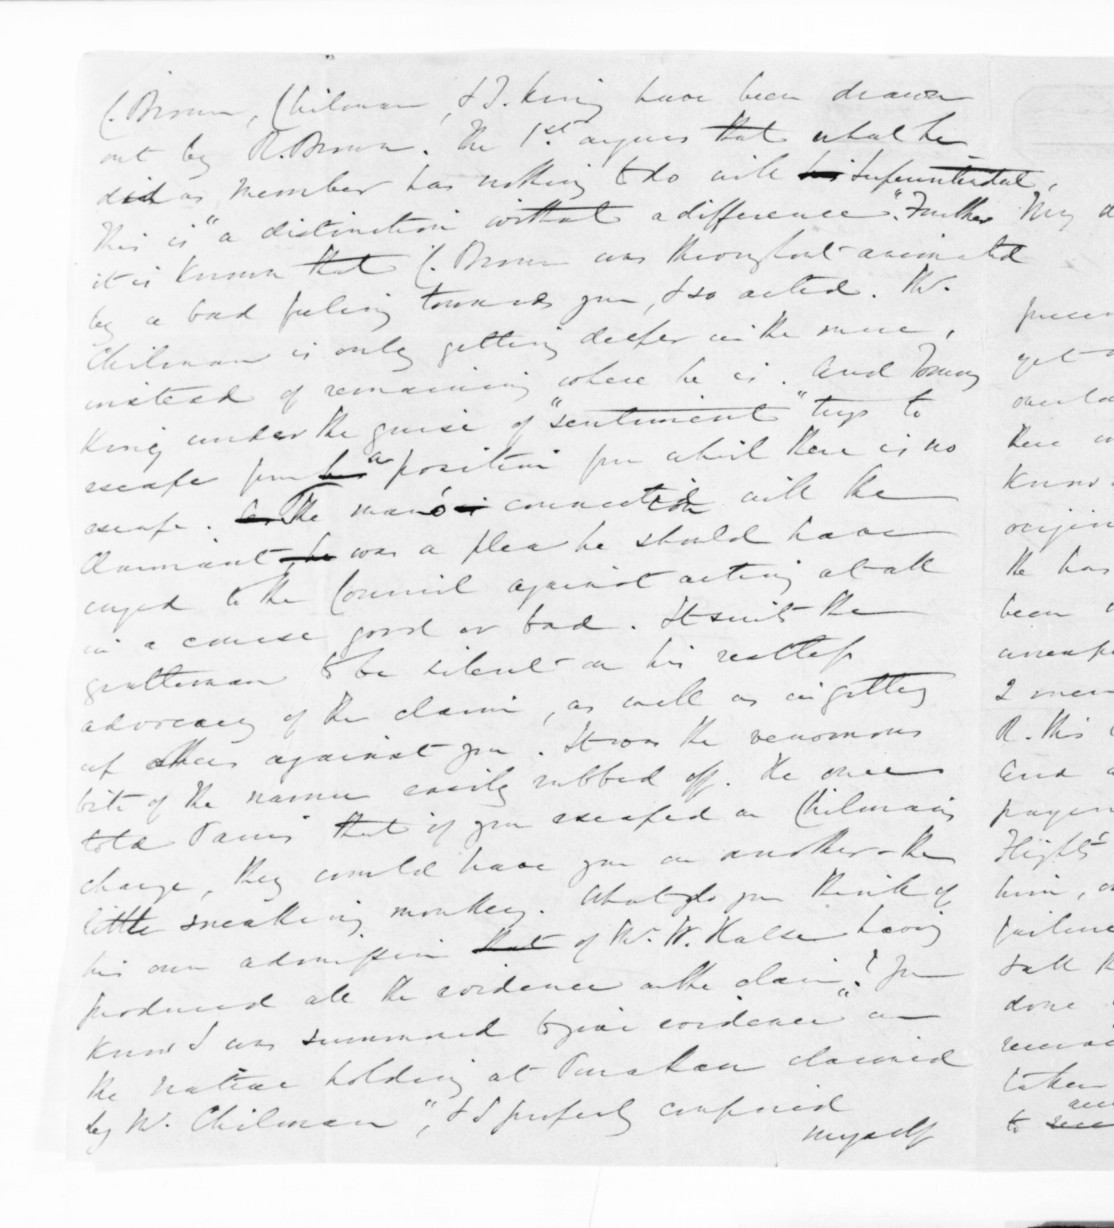 C. Brown, Chilman, & T. King have been drawn
out by R. Brown. The 1st. argues that what he
did as member has nothing to do with his Superintendent,
This is "a distinction without a difference". Further
it is known that C. Brown was throughout animated
by a bad feeling towards you, & so acted. Mr.
Chilman is only getting deeper in the mire,
instead of remaining where he is. And Tommy
King under the guise of "sentiment" trys to
escape from h a position from which there is no
escape. The man's connection with the
Claimant, he was a plea he should have
urged to the Council against acting at all
in a course good or bad. It suits the
gentleman to be silent on his restless
advocacy of the claim, as well as in getting
up others against you. It was the venomous
bite of the easily rubbed off. He once
told that if you escaped on Chilman's
charge, they would have you on another - the
little sneaking monkey. What do you think of
his own admission that of Mr. W. Halse having
produced all the evidence on the claim? You
know I was summoned to give evidence "on
the native holding at claimed
by W. Chilman", & I properly confined
myself
My